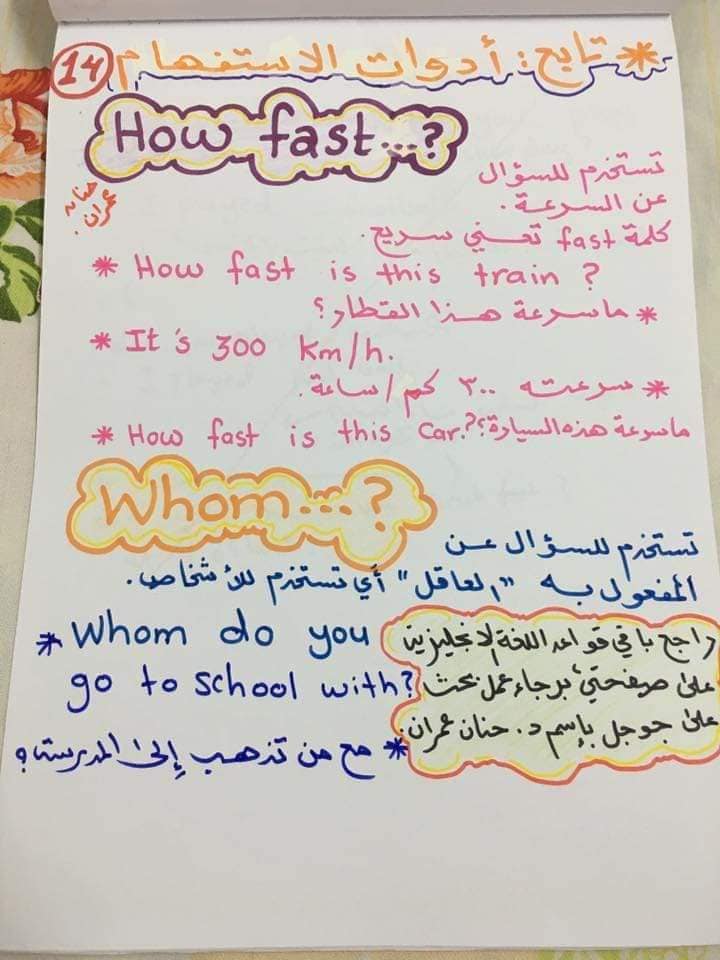 * تابع: أدوات الاستفهام
14
How fast...?
تستخدم للسؤال
عن السرعة.
حنان
عمران.
كلمة fast تعني سريع.
* How fast is this train?
* ما سرعة هذا القطار؟
* It's 300 km/h.
* سرعته ٣٠٠ كم/ساعة.
* How fast is this car?
ما سرعة هذه السيارة؟
Whom...?
تستخدم للسؤال عن
المفعول به "العاقل" أي تستخدم للأشخاص.
* Whom do you
go to school with?
* مع من تذهب إلى المدرسة؟
راجع باقي قواعد اللغة الانجليزية
على صفحتي، برجاء عمل بحث
على جوجل بإسم د. حنان عمران.